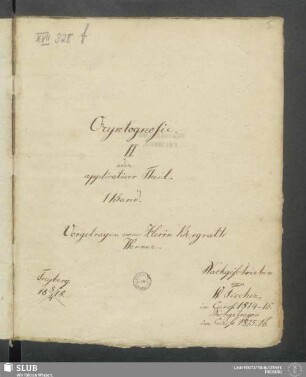 XVII 328 f
Oryktognosie.
II
oder
applicativer Theil.
1 Band.
Vorgetragen vom Herrn Bergrath
Werner.
Freyberg
18
Nachgeschrieben
von
W. Fischer,
im Curs. 1814-15.
im Curs. 1815-16.
SLUB
Wir führen Wissen.